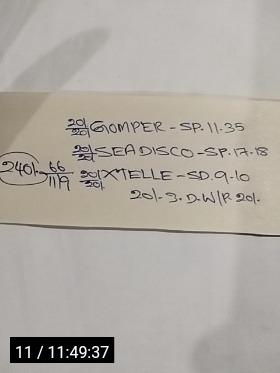 20/20 GOMPER - SP. 11.35
20/20 SEADISCO - SP. 17.18
240/- 66/119 20/20 XTELLE - SD. 9.10
20/- S. D. W/P. 20/-
11 / 11:49:37